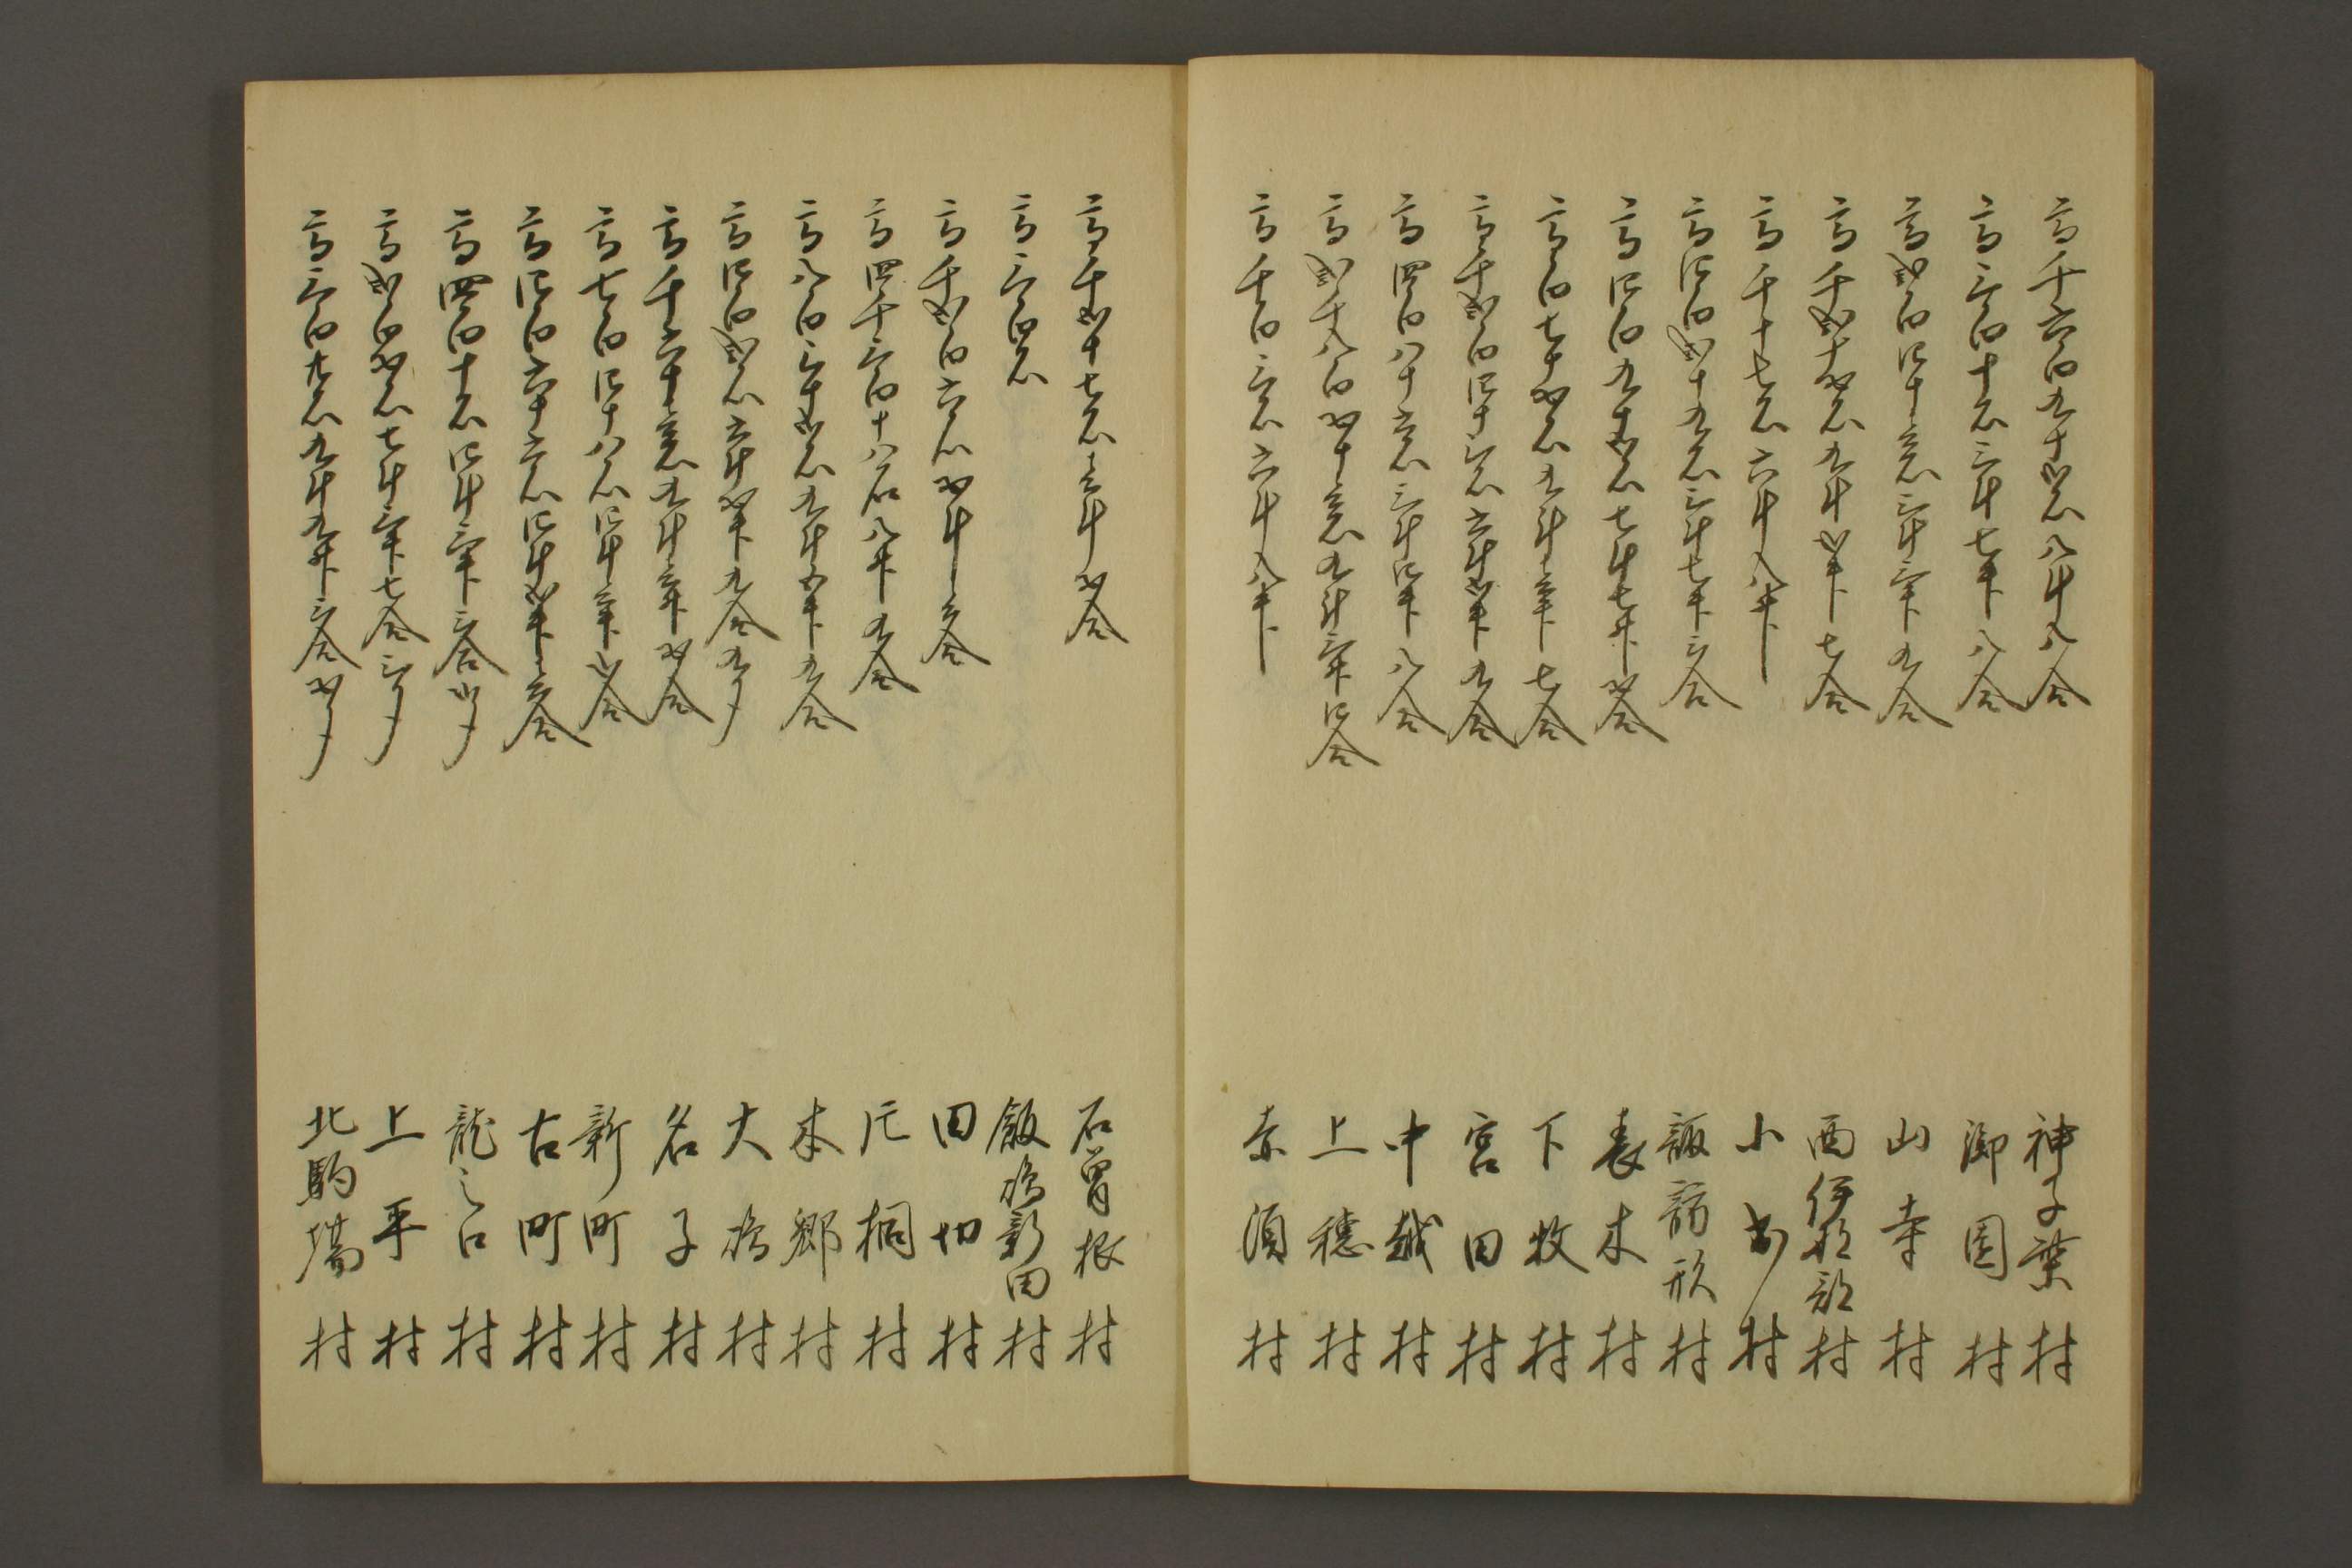 高千六百九十弐石八斗八合 神子柴村
高三百十石三斗七升八合 御園村
高弐百四十壱石三斗三升九合 山寺村
高千弐十五石九斗弐升七合 西伊那部村
高千十七石六斗八升 小出村
高四百弐十九石三斗七升三合 諏訪形村
高四百九十弐石七斗七升五合 表木村
高百七十五石九斗壱升七合 下牧村
高千弐百四十三石六斗弐升九合 宮田村
高四百八十六石三斗四升八合 中越村
高弐千八百五十壱石九斗三升四合 上穂村
高千百三石六斗八升 赤須村
高千弐十七石壱斗五合 石曽根村
高三百石 飯嶋新田村
高千弐百六石五斗壱合 田切村
高四千三百十八石八升九合 片桐村
高八百三十弐石九斗五升九合 本郷村
高四百弐石六斗五升九合九夕 大嶋村
高千六十壱石九斗壱升五合 名子村
高七百四十八石四斗壱升弐合 新町村
高四百六十六石四斗弐升壱合 古町村
高四百十石四斗三升三合弐夕 龍之口村
高弐百五石七斗三升七合三夕 上平村
高三百九石九斗九升三合五夕 北駒場村